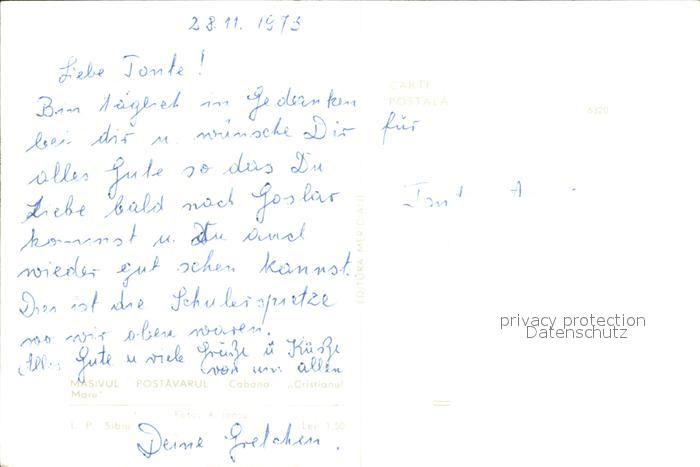 28.11.1973
Liebe Tante!
Bin täglich in Gedanken
bei dir u. wünsche Dir
alles Gute so das Du
Liebe bald nach Goslar
kommst u. Du auch
wieder gut sehen kannst.
Dies ist die Schulerspitze
wo wir oben waren.
Alles Gute u viele Grüße ü Küsse
von uns allen
MASIVUL POSTĂVARUL Cabana „Cristianul
Mare"
I. P. Sibiu
Lei 1,50
Deine Gretchen.
EDITURA MERIDIANE
CARTE
POSTALĂ
6320
für
Tant A
privacy protection
Datenschutz